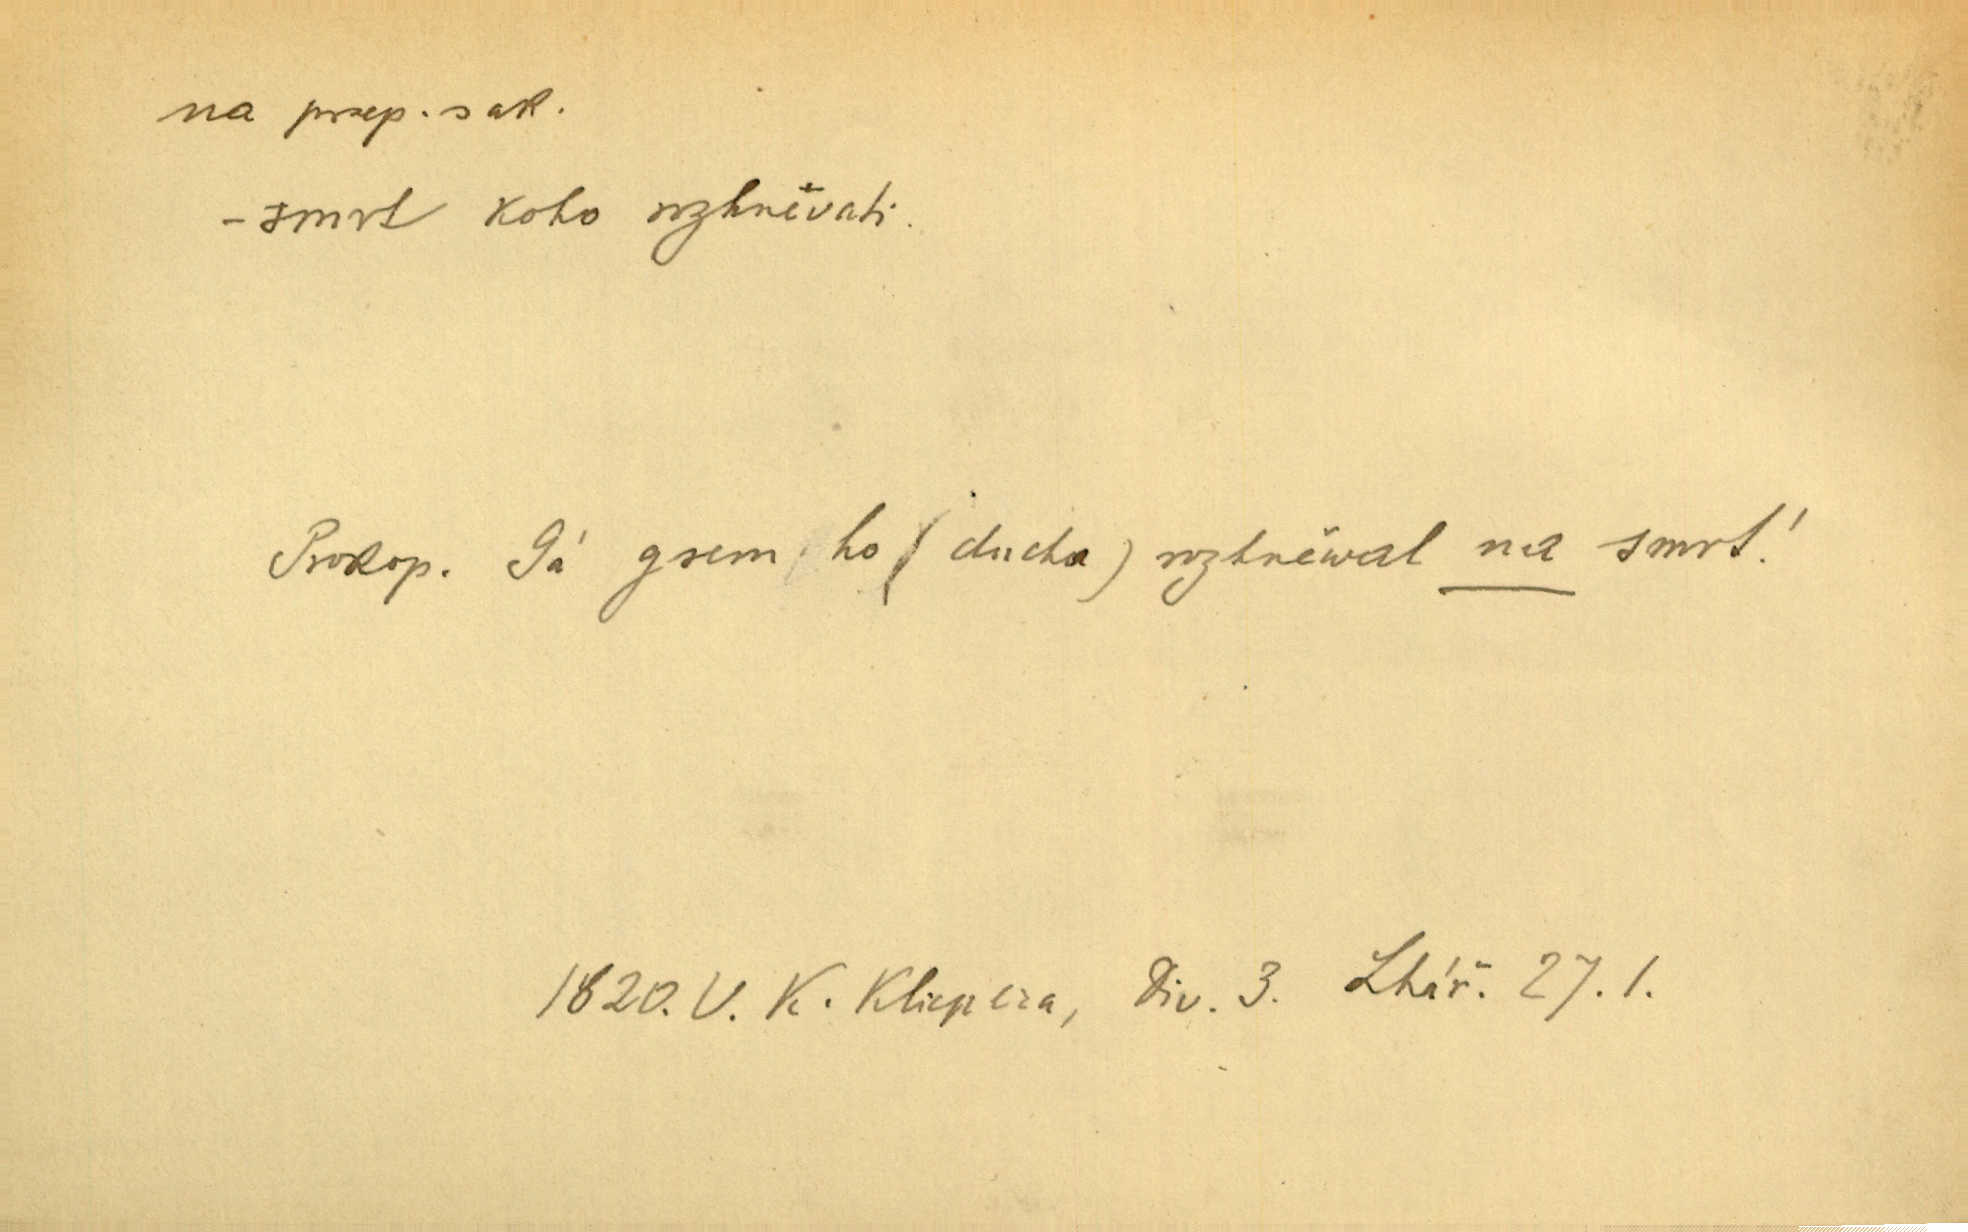 na prep. s ak.
- smrt koho rozhněvati.
Prokop. Gá gsem ho (ducha) rozhněwal na smrt!
1820. V. K. Klicpera, Div. 3. Lhář. 27. 1.